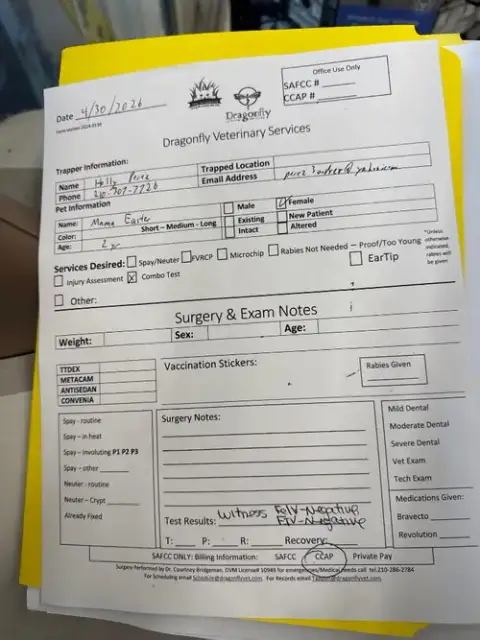 Office Use Only
SAFCC #
CCAP #
Date 4/30/2026
Dragonfly
Dragonfly Veterinary Services
Trapper Information:
Name Holly Perez Trapped Location
Phone Email Address
Pet Information
Name: Mama Earter Male Female
Color: Short – Medium - Long Existing New Patient
Age: 2 yr Intact Altered
Services Desired: Spay/Neuter FVRCP Microchip Rabies Not Needed – Proof/Too Young
*Unless otherwise indicated, rabies will be given
Injury Assessment X Combo Test EarTip
Other:
Surgery & Exam Notes
Weight: Sex: Age:
TTDEX
METACAM
ANTISEDAN
CONVENIA
Vaccination Stickers:
Rabies Given
Spay - routine
Spay – in heat
Spay – involuting P1 P2 P3
Spay – other
Neuter - routine
Neuter – Crypt
Already Fixed
Surgery Notes:
Test Results: Witness FeLV-Negative
FIV-Negative
T: P: R: Recovery:
Mild Dental
Moderate Dental
Severe Dental
Vet Exam
Tech Exam
Medications Given:
Bravecto
Revolution
SAFCC ONLY: Billing Information: SAFCC CCAP Private Pay
Surgery Performed by Dr. Courtney Bridgeman, DVM License# 10945 for emergencies/Medical needs call tel.210-286-2784
For Scheduling email Schedule@dragonflyvet.com For Records email